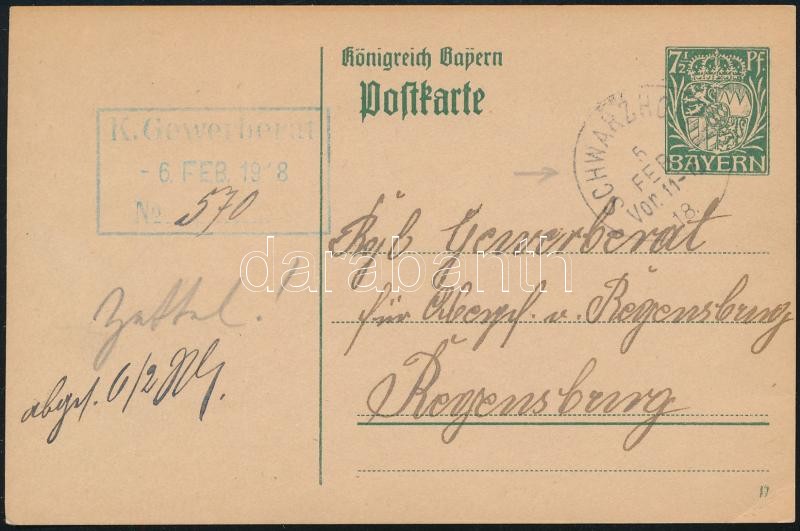 Königreich Bayern
Postkarte
7½ Pf.
BAYERN
SCHWARZHO
5
FEB
Vor. 11-
18.
K. Gewerberat
- 6. FEB. 1918
No 570
Kgl. Gewerberat
für Oberpf. u. Regensburg
Regensburg
Zettel!
abges. 6/2
darabanth
17